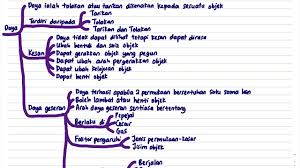 Daya ialah tolakan atau tarikan dikenakan kepada sesuatu objek
Tarikan
Daya
Terdiri daripada
Tolakan
Tarikan dan Tolakan
Daya tidak dapat dilihat tetapi kesan dapat dirasa
Ubah bentuk dan saiz objek
Kesan
Dapat gerakkan objek yang pegun
Dapat ubah arah pergerakan objek
Dapat ubah kelajuan objek
Dapat henti objek
Daya terhasil apabila 2 permukaan bersentuhan satu sama lain
Boleh lambat atau henti objek
Daya geseran
Arah daya geseran sentiasa bertentang
Pepejal
Berlaku di
Cecair
Gas
Faktor pengaruhi
Jenis permukaan-kasar
Jisim objek
Berjalan